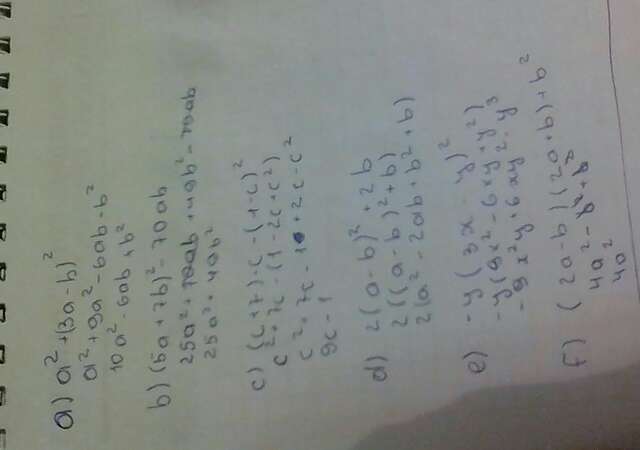 a) a² + (3a - b)²
a² + 9a² - 6ab + b²
10a² - 6ab + b²
b) (5a + 7b)² - 70ab
25a² + 70ab + 49b² - 70ab
25a² + 49b²
c) (c + 7) · c - (1 - c)²
c² + 7c - (1 - 2c + c²)
c² + 7c - 1 + 2c - c²
9c - 1
d) 2(a - b)² + 2b
2((a - b)² + b)
2(a² - 2ab + b² + b)
e) -y(3x - y)²
-y(9x² - 6xy + y²)
-9x²y + 6xy² - y³
f) (2a - b)(2a + b) + b²
4a² - b² + b²
4a²